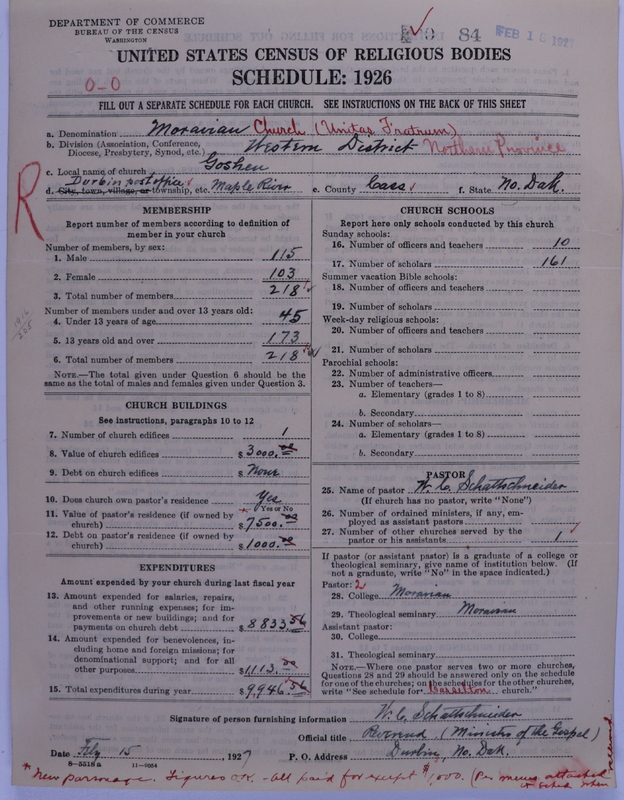 DEPARTMENT OF COMMERCE
BUREAU OF THE CENSUS
WASHINGTON
84
FEB 18 1927
UNITED STATES CENSUS OF RELIGIOUS BODIES
SCHEDULE: 1926
0-0
FILL OUT A SEPARATE SCHEDULE FOR EACH CHURCH. SEE INSTRUCTIONS ON THE BACK OF THIS SHEET
a. Denomination Moravian Church (Unitas Fratrum)
b. Division (Association, Conference, Diocese, Presbytery, Synod, etc.) Western District Northern Province
c. Local name of church Goshen
Durbin post office
d. City, town, village, or township, etc. Maple River e. County Cass f. State No. Dak.
R
MEMBERSHIP
Report number of members according to definition of
member in your church
Number of members, by sex:
1. Male 115
2. Female 103
3. Total number of members 218
Number of members under and over 13 years old:
4. Under 13 years of age 45
5. 13 years old and over 173
6. Total number of members 218
NOTE.—The total given under Question 6 should be
same as the total of males and females given under Question 3.
CHURCH BUILDINGS
See instructions, paragraphs 10 to 12
7. Number of church edifices 1
8. Value of church edifices $3000.00
9. Debt on church edifices $ None
10. Does church own pastor's residence Yes
Yes or No
11. Value of pastor's residence (if owned by
church) $7500.00
12. Debt on pastor's residence (if owned by
church) $1000.00
EXPENDITURES
Amount expended by your church during last fiscal year
13. Amount expended for salaries, repairs,
and other running expenses; for im-
provements or new buildings; and for
payments on church debt $8833.56
14. Amount expended for benevolences, in-
cluding home and foreign missions; for
denominational support; and for all
other purposes $1113.00
15. Total expenditures during year $9946.56
CHURCH SCHOOLS
Report here only schools conducted by this church
Sunday schools:
16. Number of officers and teachers 10
17. Number of scholars 161
Summer vacation Bible schools:
18. Number of officers and teachers
19. Number of scholars
Week-day religious schools:
20. Number of officers and teachers
21. Number of scholars
Parochial schools:
22. Number of administrative officers
23. Number of teachers—
a. Elementary (grades 1 to 8)
b. Secondary
24. Number of scholars—
a. Elementary (grades 1 to 8)
b. Secondary
PASTOR
25. Name of pastor W. C. Schattschneider
(If church has no pastor, write "None")
26. Number of ordained ministers, if any, em-
ployed as assistant pastors
27. Number of other churches served by the
pastor or his assistants 1
If pastor (or assistant pastor) is a graduate of a college or
theological seminary, give name of institution below. (If
not a graduate, write "No" in the space indicated.)
Pastor: 2
28. College Moravian
29. Theological seminary Moravian
Assistant pastor:
30. College
31. Theological seminary
NOTE.—Where one pastor serves two or more churches,
Questions 28 and 29 should be answered only on the schedule
for one of the churches; on the schedules for the other churches,
write "See schedule for Casselton church."
Signature of person furnishing information W. C. Schattschneider
Official title Reverend (Minister of the Gospel)
Date Feby 15, 1927 P. O. Address Durbin, No. Dak.
8-5518a 11-9084
* New parsonage. Figures O.K. - all paid for except $1,000. (Per memo attached to sched. when received